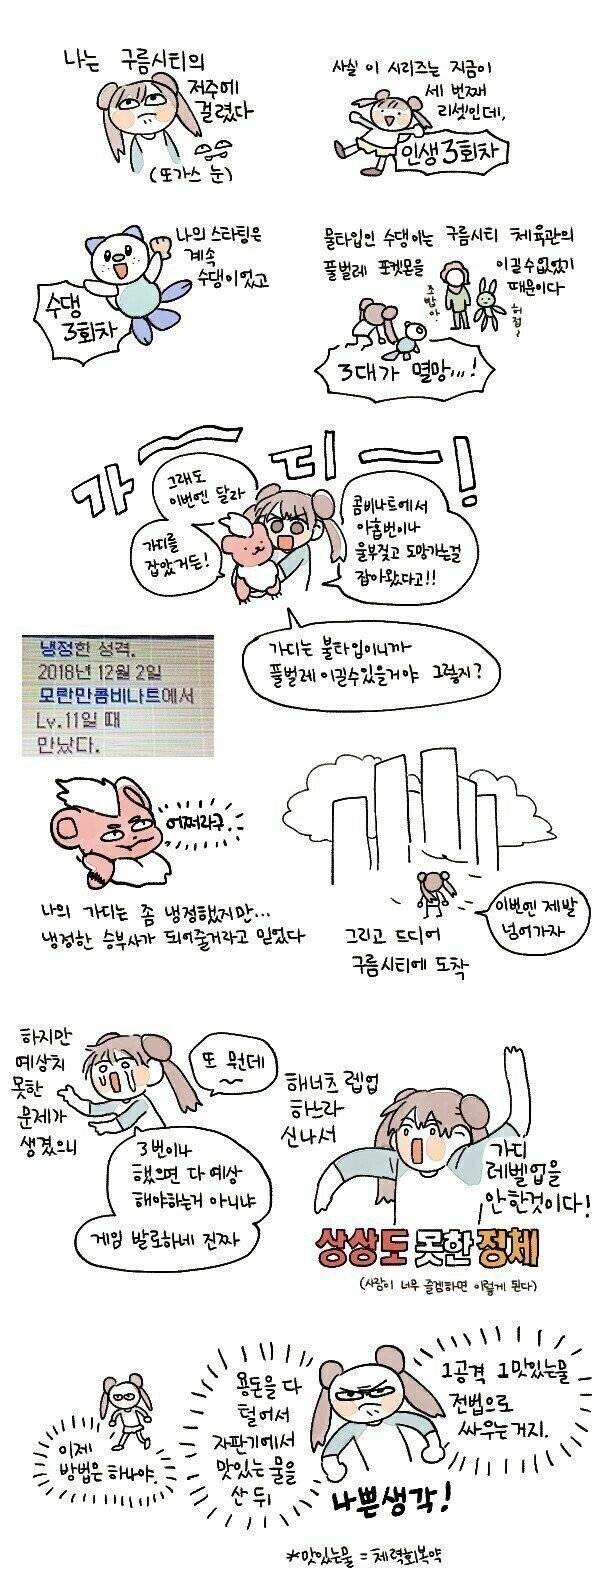 나는 구름시티의
저주에
걸렸다
(또가스 눈)
사실 이 시리즈는 지금이
세 번째
리셋인데,
인생 3회차
나의 스타팅은
계속
수댕이었고
수댕
3회차
물타입인 수댕이는 구름시티 체육관의
풀벌레 포켓몬을
이길수없었기
때문이다
조밥아.
허접~
3대가 멸망,,,!
가ㅡ디ㅡ!
그래도
이번엔 달라
가디를
잡았거든!
콤비나트에서
아홉번이나
울부짖고 도망가는걸
잡아왔다고!!
가디는 불타입이니까
풀벌레 이길수있을거야 그렇지?
냉정한 성격.
2018년 12월 2일
모란만콤비나트에서
Lv.11일 때
만났다.
어쩌라구.
나의 가디는 좀 냉정했지만...
냉정한 승부사가 되어줄거라고 믿었다
이번엔 제발
넘어가자
그리고 드디어
구름시티에 도착
하지만
예상치
못한
문제가
생겼으니
또 뭔데
3번이나
했으면 다 예상
해야하는거 아니냐
게임 발로하네 진짜
해너츠 렙업
하느라
신나서
가디
레벨업을
안한것이다!
상상도 못한 정체
(사람이 너무 즐겜하면 이렇게 된다)
이제
방법은 하나야.
용돈을 다
털어서
자판기에서
맛있는 물을
산 뒤
1공격 1맛있는물
전법으로
싸우는거지.
나쁜생각!
*맛있는물 = 체력회복약